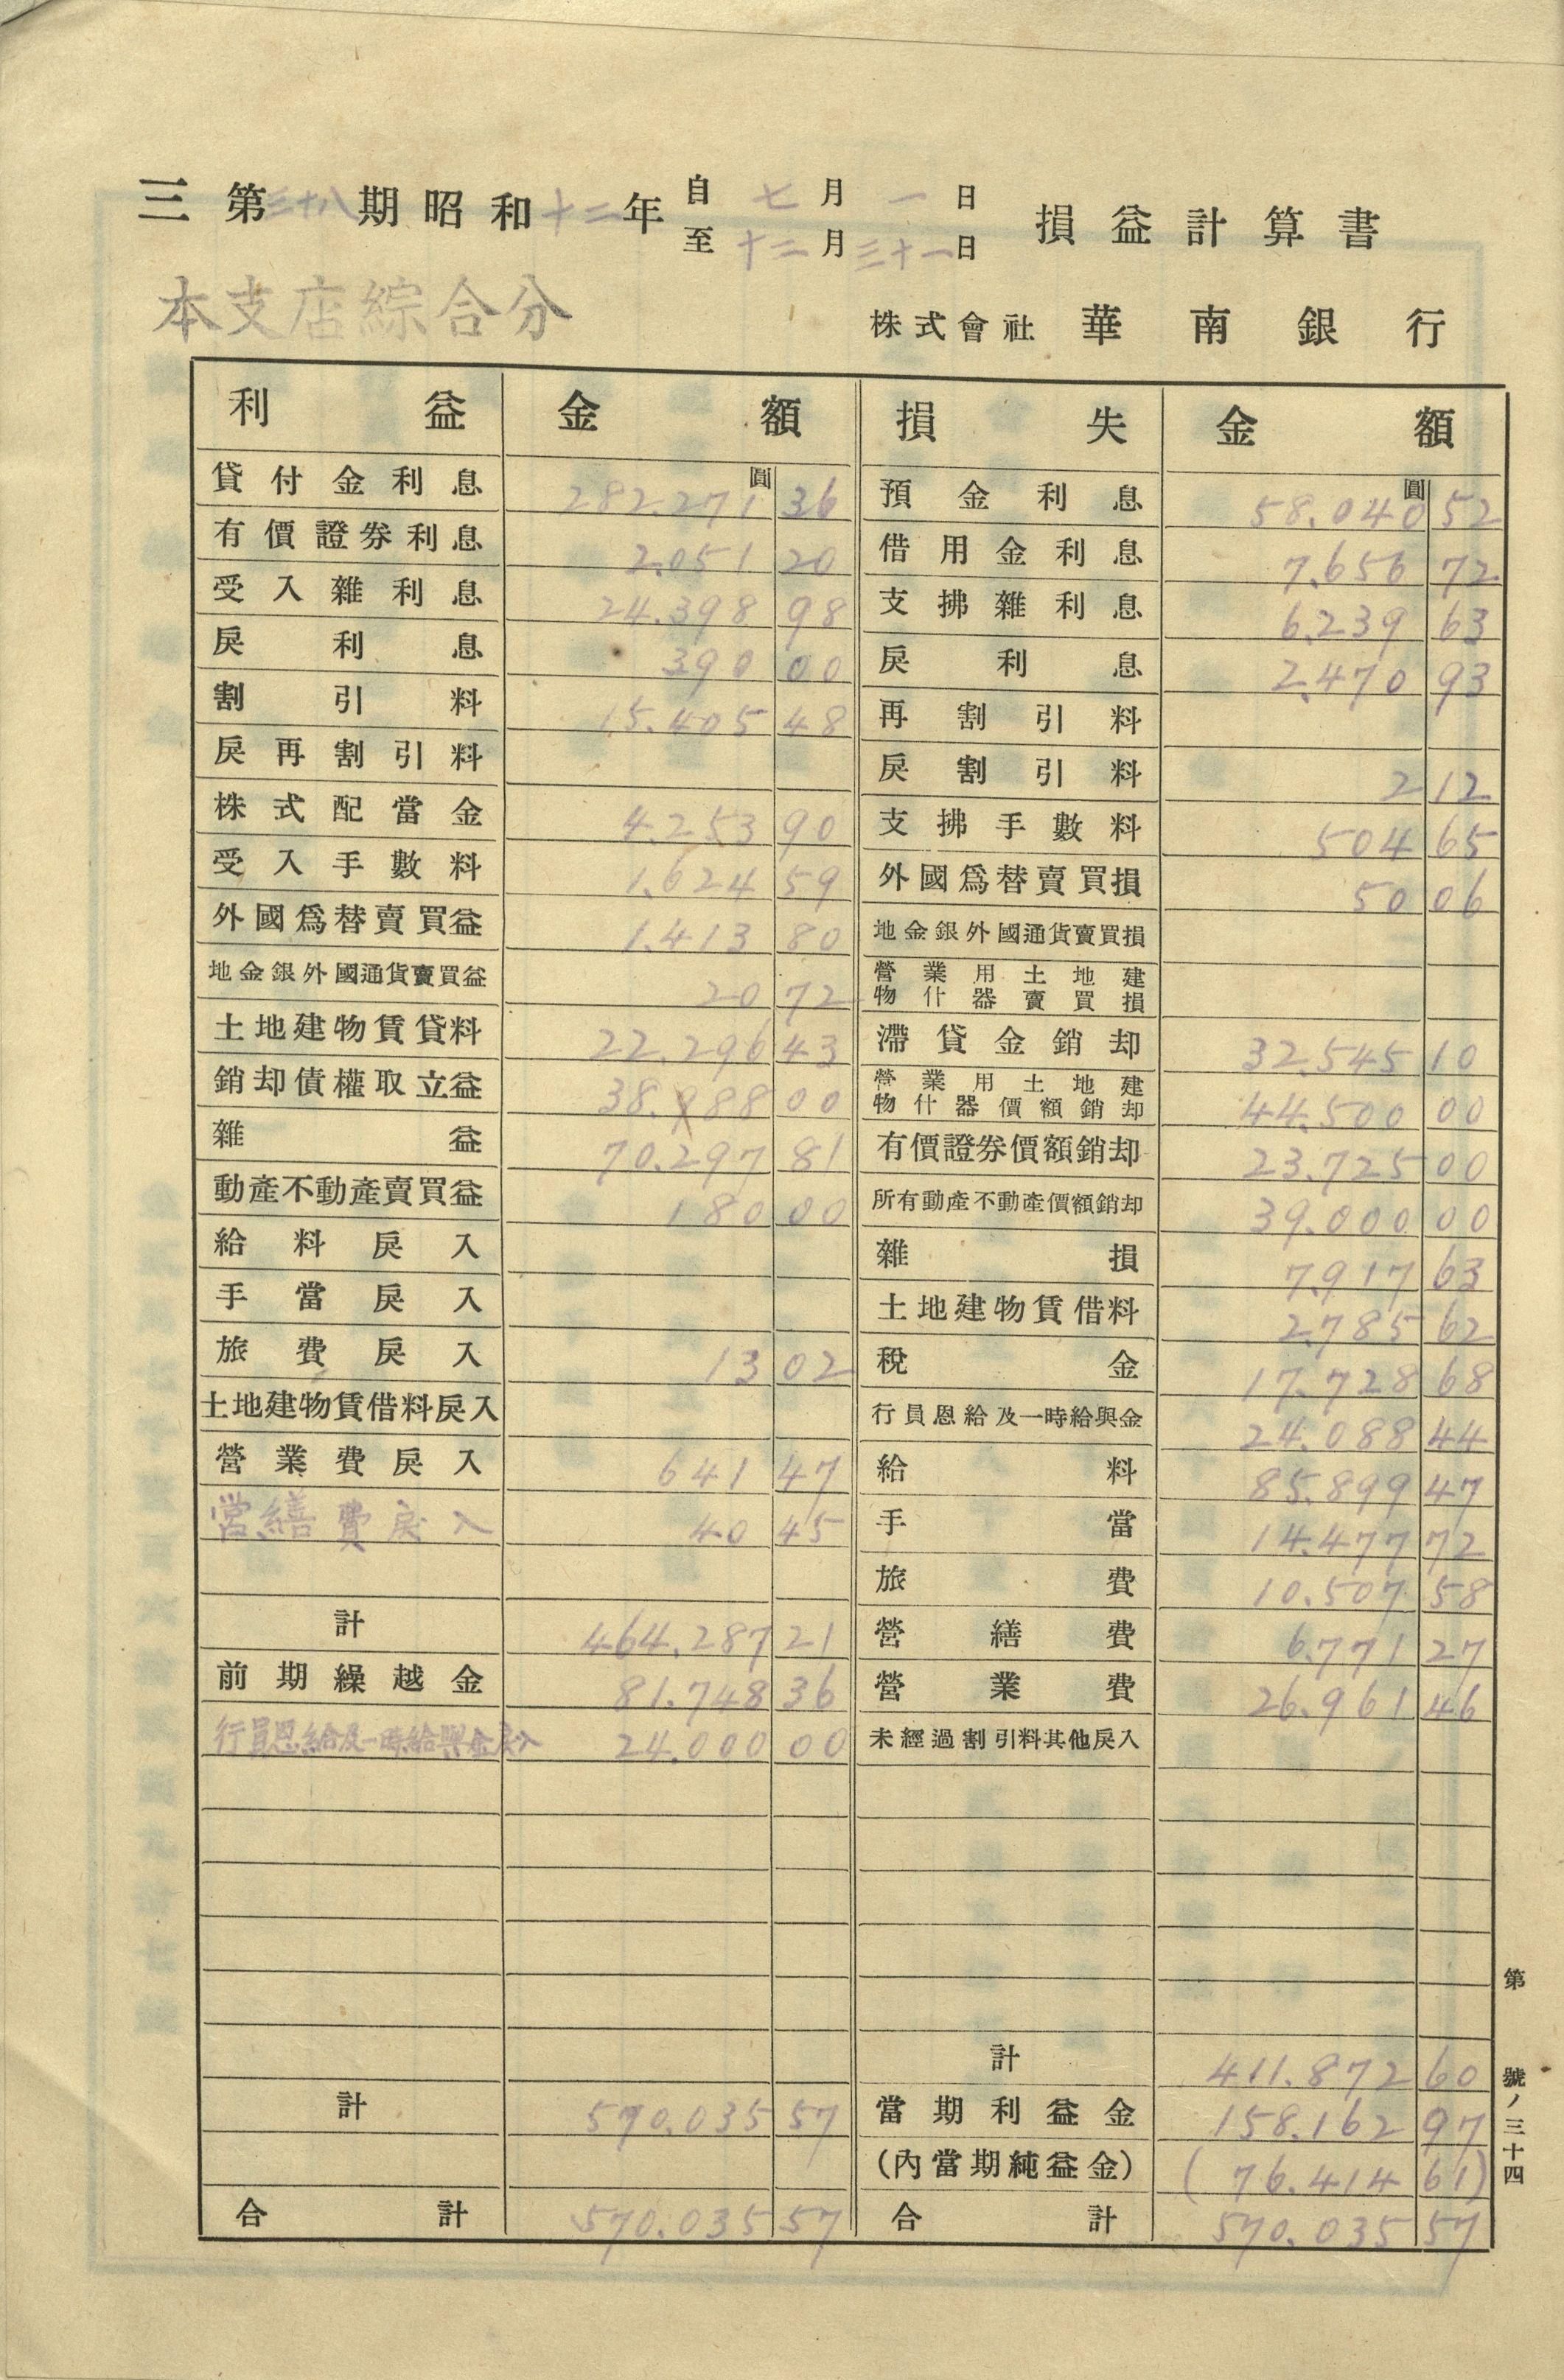 三 第三十八期昭和十二年 自七月一日 至十二月三十一日 損益計算書
本支店綜合分
株式會社 華南銀行
利益 金額 損失 金額
貸付金利息 282.271圓 36 預金利息 58.040圓 52
有價證券利息 2.051 20 借用金利息 7.656 72
受入雜利息 24.398 98 支拂雜利息 6.239 63
戾利息 390 00 戾利息 2.470 93
割引料 15.405 48 再割引料
戾再割引料 戾割引料 2 12
株式配當金 4.253 90 支拂手數料 504 65
受入手數料 1.624 59 外國爲替賣買損 50 06
外國爲替賣買益 1.413 80 地金銀外國通貨賣買損
地金銀外國通貨賣買益 20 72 營業用土地建物什器賣買損
土地建物賃貸料 22.296 43 滯貸金銷却 32.545 10
銷却債權取立益 38.988 00 營業用土地建物什器價額銷却 44.500 00
雜益 70.297 81 有價證券價額銷却 23.725 00
動產不動產賣買益 180 00 所有動產不動產價額銷却 39.000 00
給料戾入 雜損 7.917 63
手當戾入 土地建物賃借料 2.785 62
旅費戾入 13 02 稅金 17.728 68
土地建物賃借料戾入 行員恩給及一時給與金 24.088 44
營業費戾入 641 47 給料 85.899 47
営繕費戾入 40 45 手當 14.477 72
旅費 10.507 58
計 464.287 21 營繕費 6.771 27
前期繰越金 81.748 36 營業費 26.961 46
行員恩給及一時給與金戾入 24.000 00 未經過割引料其他戾入
計 411.872 60
計 570.035 57 當期利益金 158.162 97
(內當期純益金) (76.414 61)
合計 570.035 57 合計 570.035 57
第 號ノ三十四